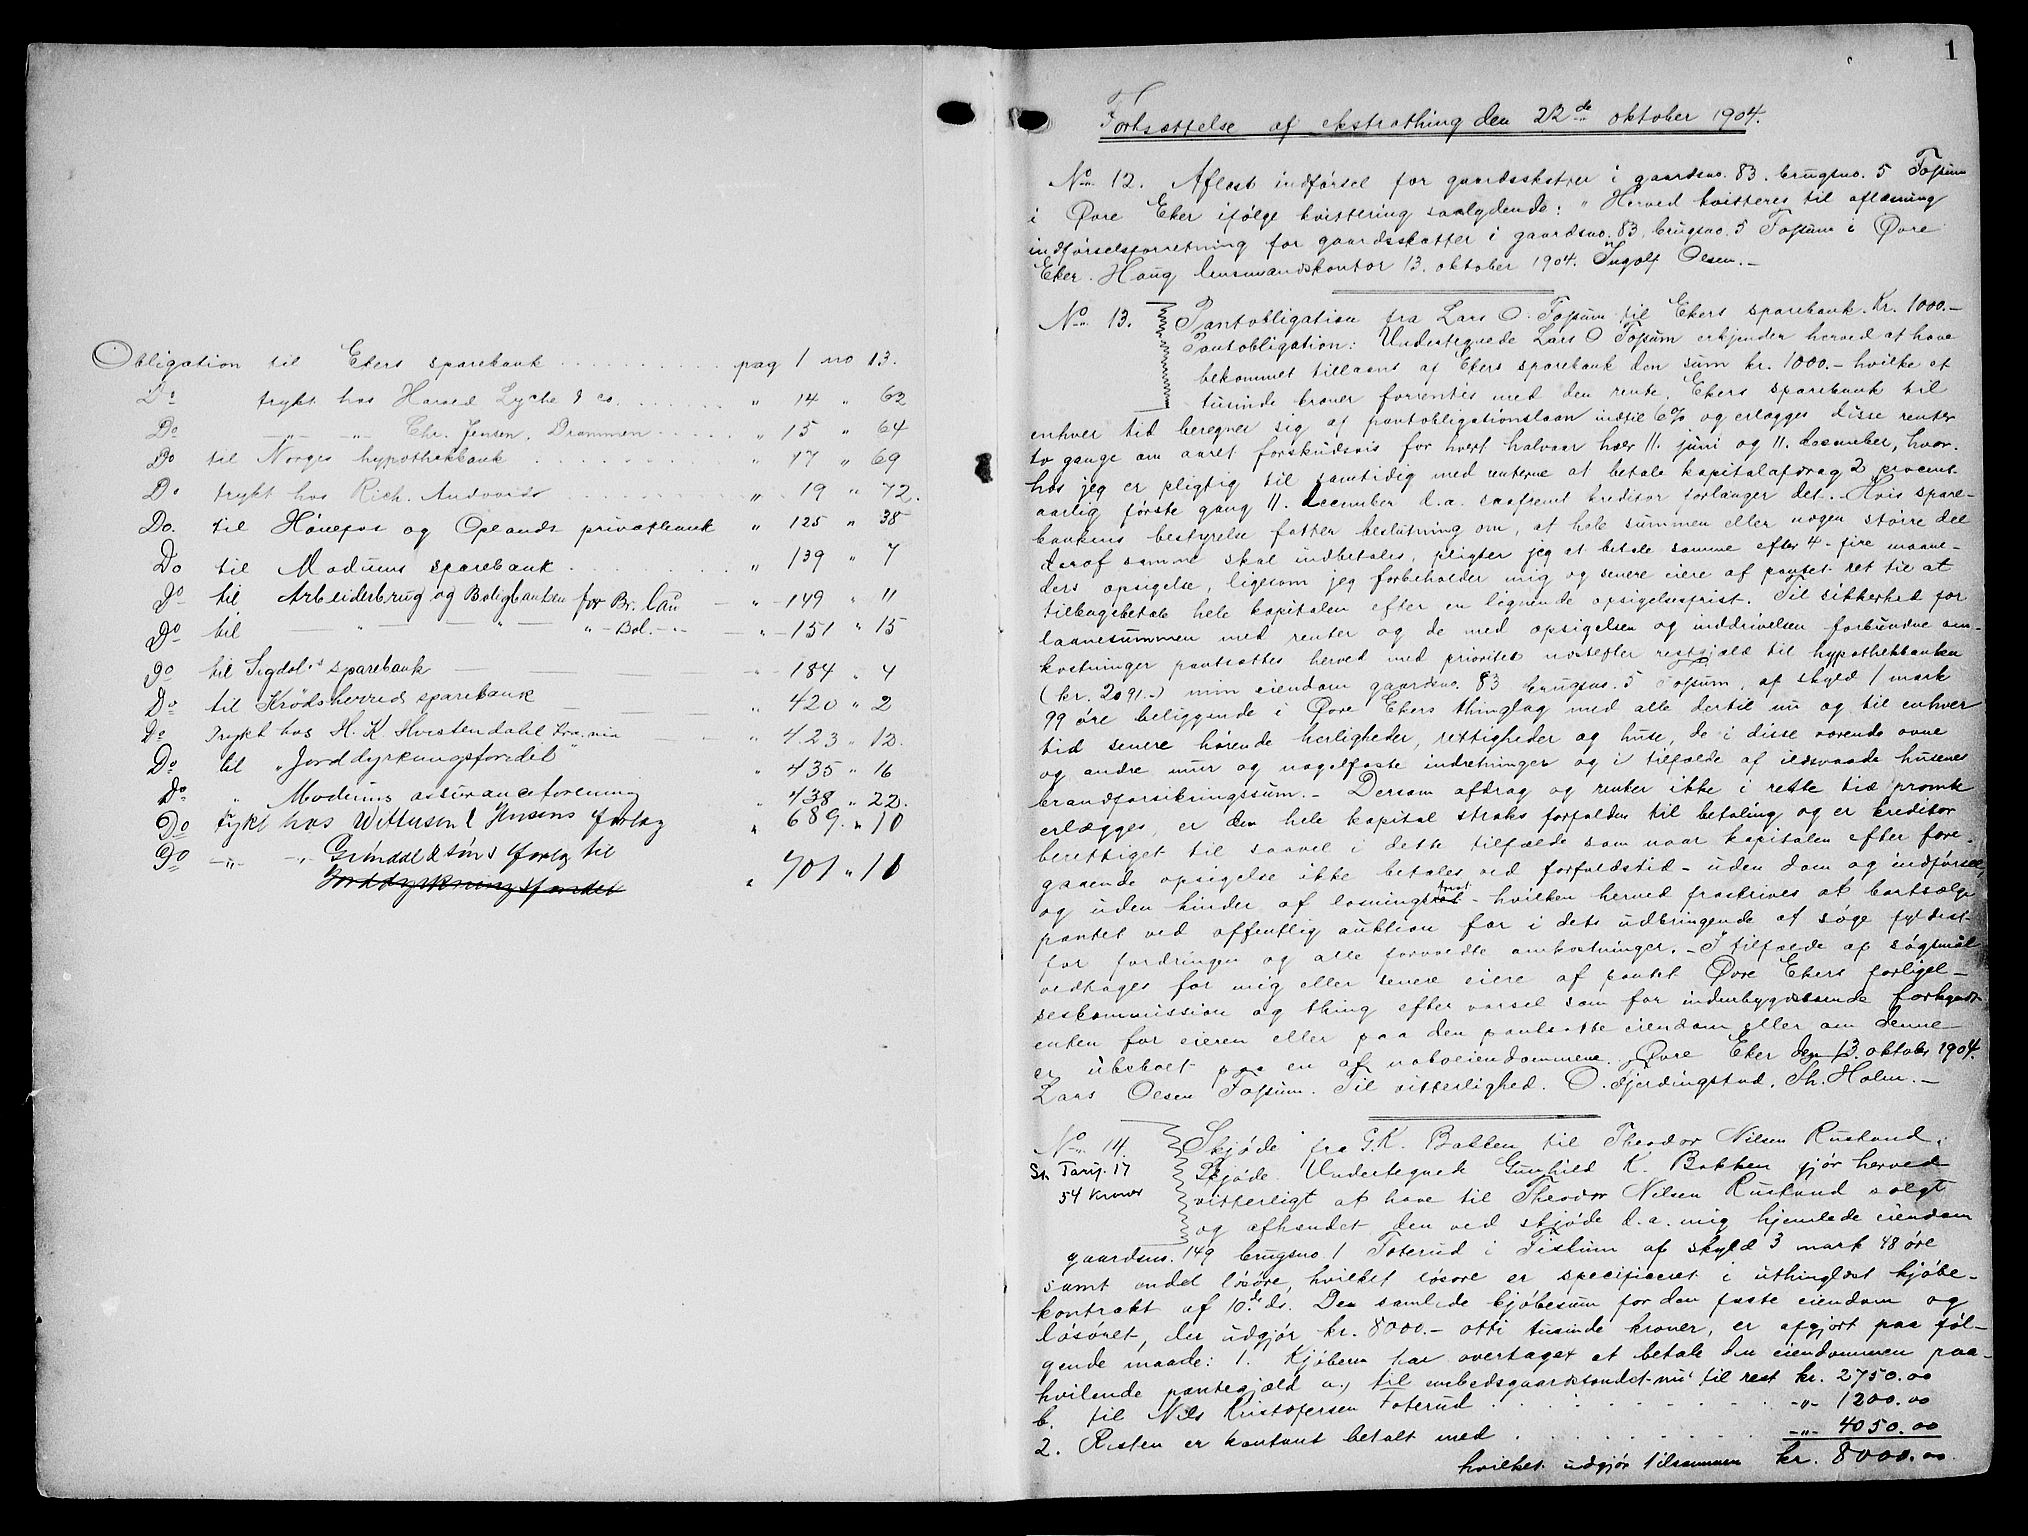 Obligation til Ekers sparebank . . . . . . . . . . pag 1 no 13.
Do trykt hos Harald Lyche & co. . . . . . " 14 " 62
Do —"— —"— Chr. Jensen, Drammen . . . . . " 15 " 64
Do til Norges hypothekbank . . . . . . . . " 17 " 69
Do trykt hos Rich. Andvords . . . . . . . . " 19 " 72.
Do. til Hönefos og Oplands privatbank " 125 " 38
Do til Modums sparebank . . . . . . . " 139 " 7
Do til Arbeiderbrug og Boligbanken for Br. Lån — " — 149 " 11
Do til — " — " — " — Bol. — " — " — 151 " 15
Do til Sigdals sparebank — — — " 184 " 4
Do til Krødsherred sparebank — — " 420 " 2
Do Trykt hos H. K. Hvistendahl — — " 423 " 12.
Do til "Jorddyrkningsfondet" " 435 " 16
Do " Modums assuranceforening " 438 " 22.
Do tykt hos Wittusen & Jensens forlag " 689. " 10
Do —"— —"— Gröndal & söns forlag til
Jorddyrkningsfondet " 701 " 11
1
Fortsættelse af ekstrathing den 22de oktober 1904.
No 12. Aflæst indførsel for gaardsskatter i gaardsno. 83. brugsno. 5 Fossum
i Øvre Eker ifølge kvittering saalydende: "Herved kvitteres til aflæsning
indførselsforretning for gaardsskatter i gaardsno. 83, brugsno. 5 Fossum i Øvre
Eker. Haug lensmandskontor 13. oktober 1904. Ingolf Olsen. —
No 13. Pantobligation fra Lars O. Fossum til Ekers sparebank. Kr. 1000.—
Pantobligation: Undertegnede Lars O Fossum erkjender herved at have
bekommet tillaans af Ekers sparebank den sum kr. 1000.— hvilke et
tusinde kroner forrentes med den rente, Ekers sparebank til
enhver tid beregner sig af pantobligationslaan indtil 6% og erlægges disse renter
to gange om aaret forskudsvis for hvert halvaar hver 11. juni og 11. december, hvor-
hos jeg er pligtig til samtidig med renterne at betale kapitalafdrag 2 procent
aarlig første gang 11. december d.a. saafremt kreditor forlanger det. Hvis spare-
bankens bestyrelse fatter beslutning om, at hele summen eller nogen større del
deraf samme skal indbetales, pligter jeg at betale samme efter 4- fire maane-
ders opsigelse, ligesom jeg forbeholder mig og senere eiere af pantet ret til at
tilbagebetale hele kapitalen efter en lignende opsigelsesfrist. Til sikkerhed for
laanesummen med renter og de med opsigelsen og inddrivelsen forbundne om-
kostninger pantsættes herved med prioritet næstefter restgjæld til hypothekbanken
(kr. 2091.—) min eiendom gaardsno. 83 brugsno. 5 Fossum, af skyld 1 mark
99 øre beliggende i Øvre Ekers thinglag med alle dertil nu og til enhver
tid senere hørende herligheder, rettigheder og huse, de i disse værende ovne
og andre mur og nagelfaste indretninger og i tilfælde af ildsvaade husenes
brandforsikringssum. — Dersom afdrag og renter ikke i rette tid promte
erlægges, er den hele kapital straks forfalden til betaling og er kreditor
berettiget til saavel i dette tilfælde som naar kapitalen efter fore-
gaaende opsigelse ikke betales ved forfaldstid — uden dom og indførsel,
og uden hinder af løsningsret — hvilken herved fraskrives at bortsælge
pantet ved offentlig auktion for i dets udbringende at søge fyldest-
for fordringen og alle forvoldte omkostninger. — I tilfælde af søgsmål
vedtages for mig eller senere eiere af pantet Øvre Ekers forligel-
seskommission og thing efter varsel som for indenbygdsboende forkyndt
enten for eieren eller paa den pantsatte eiendom eller om denne
er ubeboet paa en af naboeiendommene. Øvre Eker den 13. oktober 1904.
Lars Olsen Fossum. Til vitterlighed. O. Fjerdingstad. Th. Holm. —
No 14. Skjøde fra G. K. Bakken til Theodor Nilsen Rustand.
St. Tarif. 17 Skjøde. Undertegnede Gunhild K. Bakken gjør herved
54 kroner vitterligt at have til Theodor Nilsen Rustand solgt
og afhændet den ved skjøde d.a. mig hjemlede eiendom
gaardsno. 149 brugsno. 1 Foterud i Fiskum af skyld 3 mark 48 öre
samt endel løsøre, hvilket løsøre er specificeret i uthinglæst kjøbe-
kontrakt af 10de ds. Den samlede kjøbesum for den faste eiendom og
løsøret, der udgjør kr. 8000.— otti tusinde kroner, er afgjort paa føl-
gende maade: 1. Kjøberen har overtaget at betale den eiendommen paa-
hvilende pantegjæld a, til embedsgaardsfondet nu til rest kr. 2750.00
b. til Nils Kristofersen Foterud . . . . . . . . —"— 1200.00
2. Resten er kontant betalt med . . . . . . . . —"— 4050.00
hvilket udgjør tilsammen kr. 8000.00